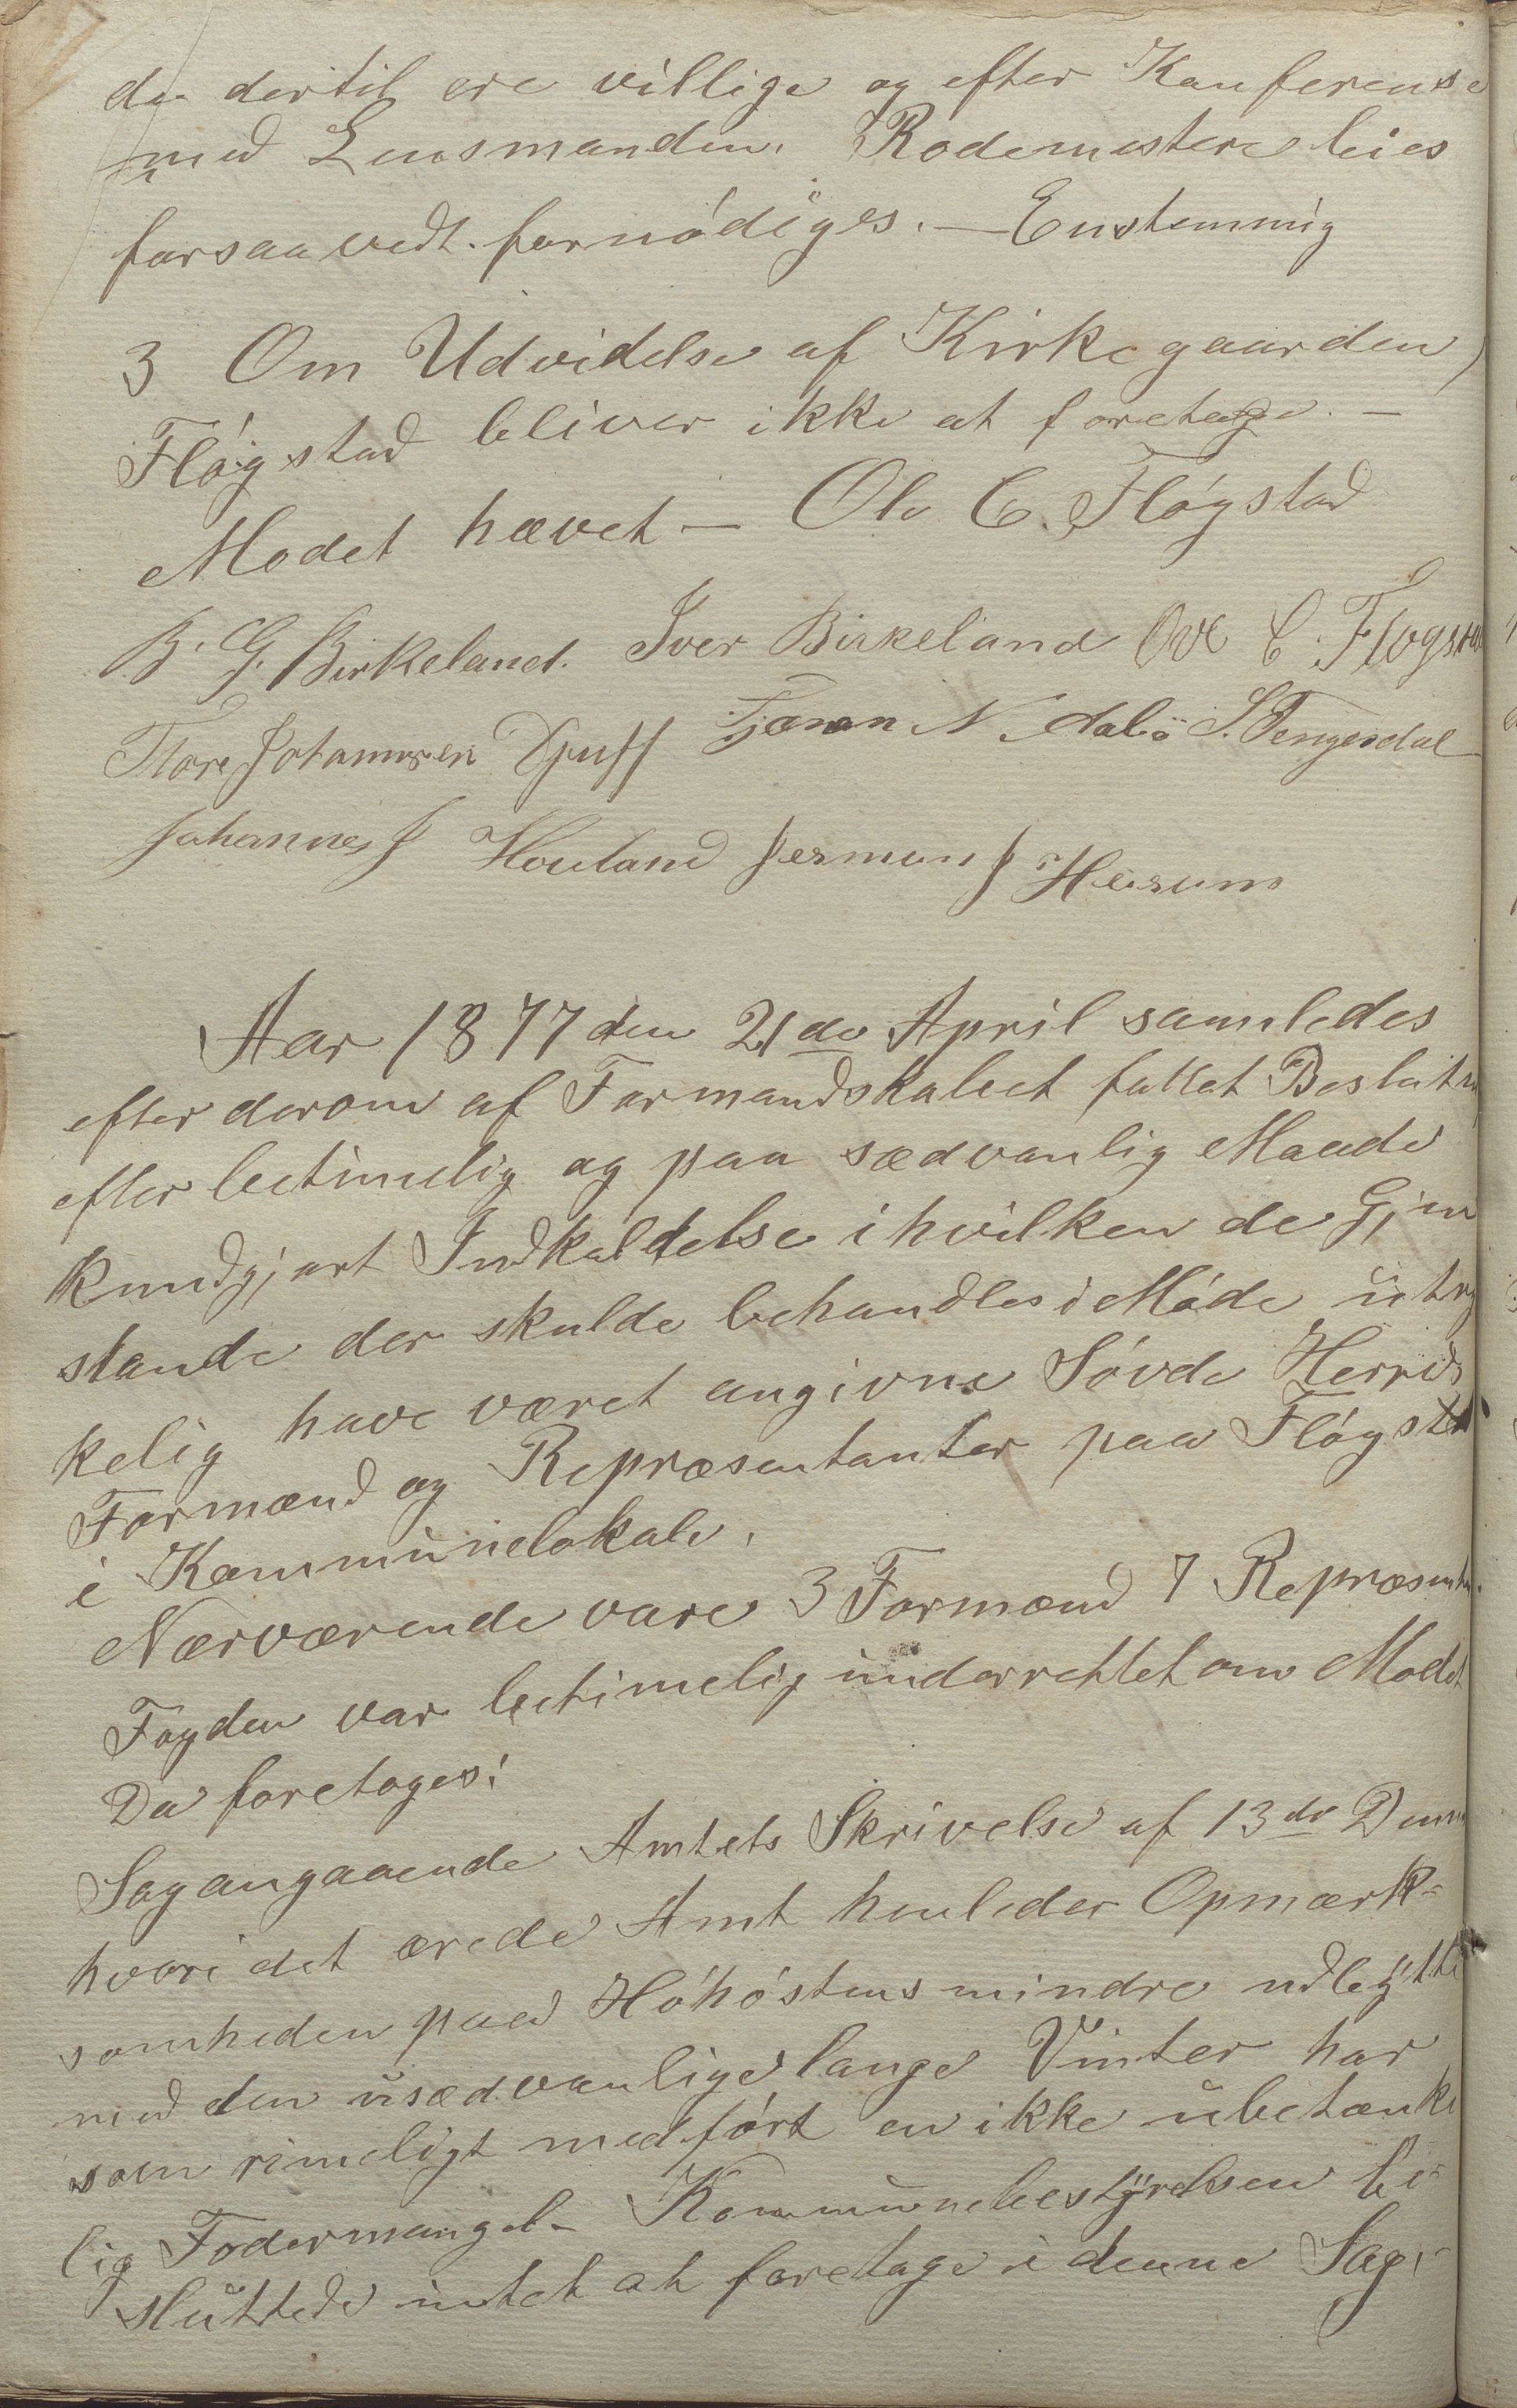 de dertil ere villige og efter Konferense
med Lensmanden. Rodemestere leies
forsaavedt. fornødiges. — Enstemmig
3 Om Udvidelse af Kirkegaarden,
Fløgstad bliver ikke at foretage. —
Modet hævet — Ole C. Fløgstad
B. G. Birkeland. Iver Birkeland Ove C. Flogstad
Tore Johannesen Djuff N. S. Tengesdal
Johannes J Houland Jermun J Heisum
Aar 1877 den 21de April samledes
efter derom af Formandskabet fattet Beslutn
efter betimelig og paa sædvanlig Maade
kundgjort Indkaldelse i hvilken de Gjen
stande der skulde behandles i Møde udtry
kelig have været angivne Søvde Herreds
Formænd og Repræsentanter paa Fløgstad
i Kommunelokale.
Nærværende vare 3 Formænd 7 Repræsent.
Fogden var betimelig underrettet om Modet
Da foretoges:
Sag angaaende Amtets Skrivelse af 13de Dennes
hvori det ærede Amt henleder Opmærk-
somheden paa Høhøstens mindre udbytte
med den usædvanlige lange Vinter har
som rimeligt medført en ikke ubetænke
lig Fodermangel. Kommunebestyrelsen be-
sluttede intet at foretage i denne Sag.